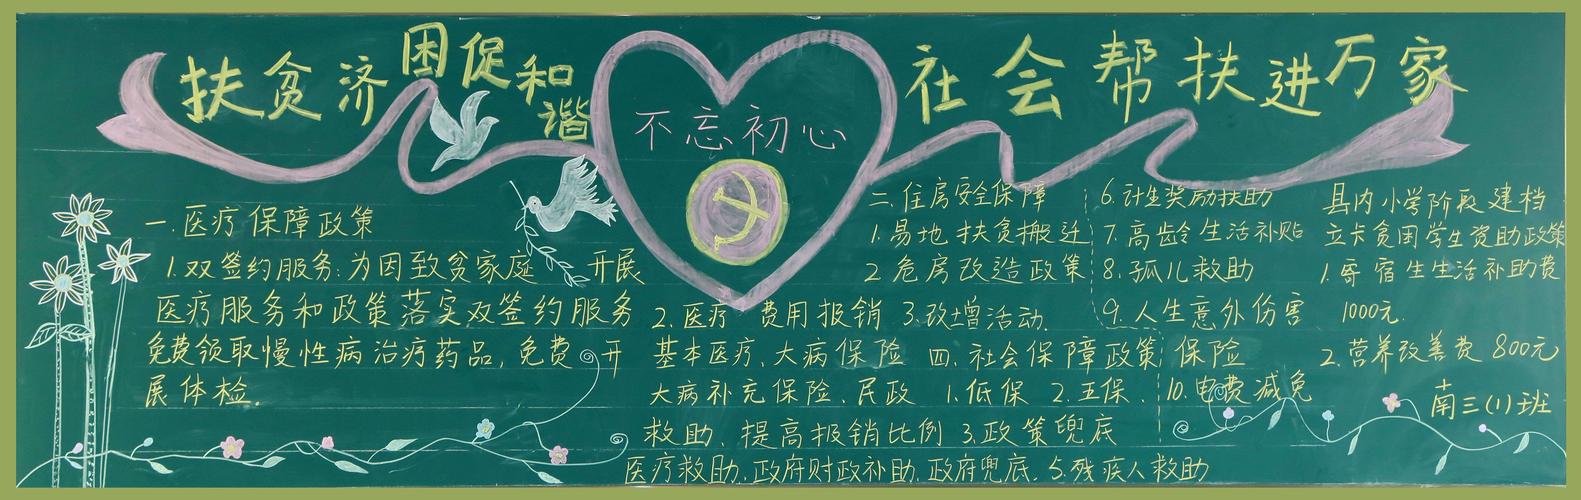 扶贫济困促和谐
社会帮扶进万家
不忘初心
一.医疗保障政策
1.双签约服务:为因致贫家庭 开展
医疗服务和政策落实双签约服务
免费领取慢性病治疗药品,免费 开
展体检.
2.医疗 费用报销
基本医疗、大病保险
大病补充保险、民政
救助、提高报销比例
医疗救助、政府财政补助、政府兜底.
二.住房安全保障
1.易地扶贫搬迁
2.危房改造政策
3.改增活动.
四.社会保障政策
1.低保 2.五保.
3.政策兜底
5.残疾人救助
6.计生奖励扶助
7.高龄生活补贴
8.孤儿救助
9.人生意外伤害
保险
10.电费减免
县内小学阶段建档
立卡贫困学生资助政策
1.寄宿生生活补助费
1000元.
2.营养改善费 800元
南三(1)班